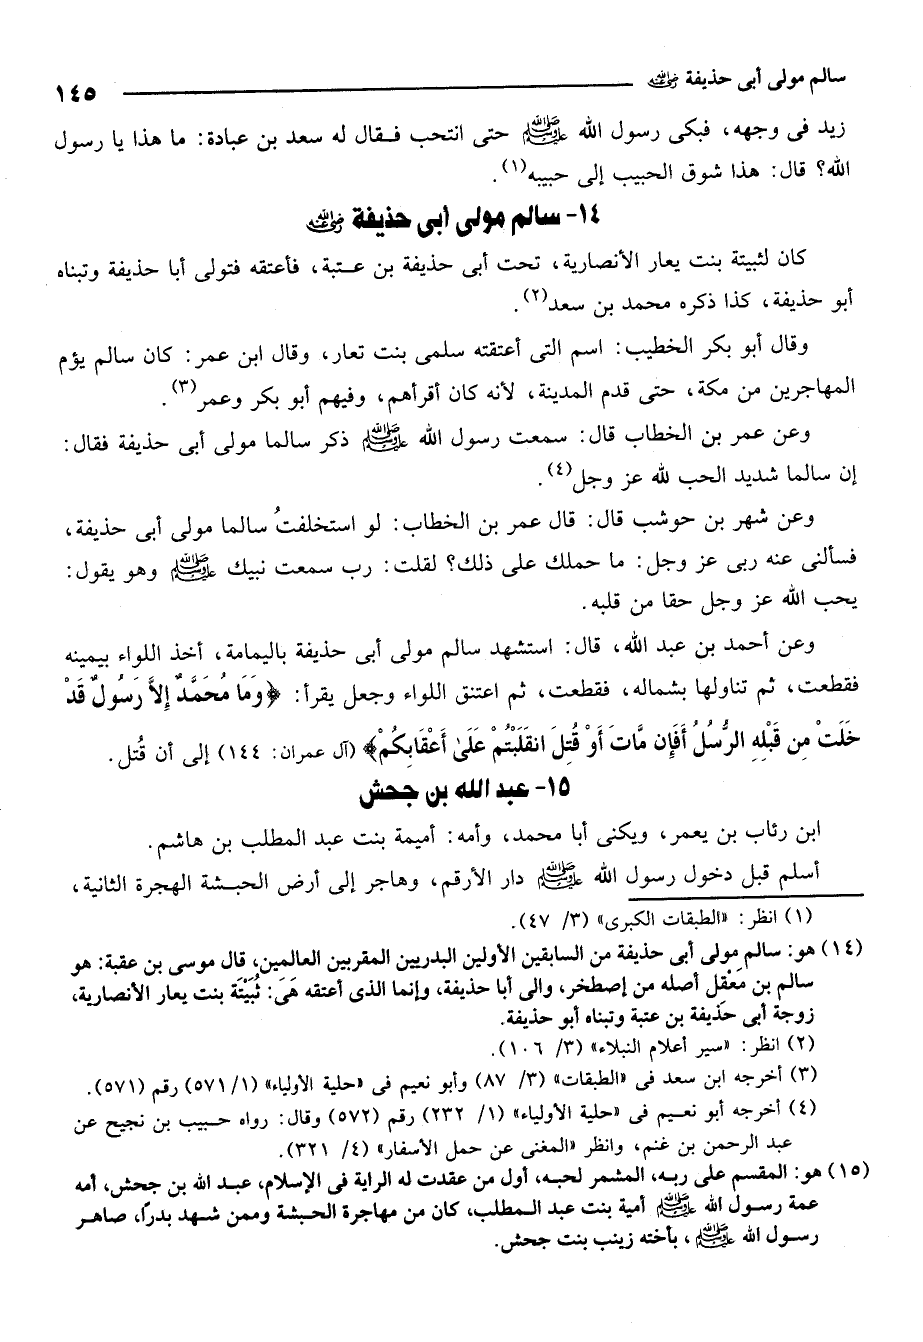 سالم مولى أبى حذيفة رضي الله عنه ١٤٥
زيد فى وجهه، فبكى رسول الله ﷺ حتى انتحب فـقال له سعد بن عبادة: ما هذا يا رسول
الله؟ قال: هذا شوق الحبيب إلى حبيبه(١).
١٤- سالم مولى أبى حذيفة رضي الله عنه
كان لثبيتة بنت يعار الأنصارية، تحت أبى حذيفة بن عـتبة، فأعتقه فتولى أبا حذيفة وتبناه
أبو حذيفة، كذا ذكره محمد بن سعد(٢).
وقال أبو بكر الخطيب: اسم التى أعتقته سلمى بنت تعار، وقال ابن عمر: كان سالم يؤم
المهاجرين من مكة، حتى قدم المدينة، لأنه كان أقرأهم، وفيهم أبو بكر وعمر(٣).
وعن عمر بن الخطاب قال: سمعت رسول الله ﷺ ذكر سالما مولى أبى حذيفة فقال:
إن سالما شديد الحب لله عز وجل(٤).
وعن شهر بن حوشب قال: قال عمر بن الخطاب: لو استخلفتُ سالما مولى أبى حذيفة،
فسألنى عنه ربى عز وجل: ما حملك على ذلك؟ لقلت: رب سمعت نبيك ﷺ وهو يقول:
يحب الله عز وجل حقا من قلبه.
وعن أحمد بن عبد الله، قال: استشهد سالم مولى أبى حذيفة باليمامة، أخذ اللواء بيمينه
فقطعت، ثم تناولها بشماله، فقطعت، ثم اعتنق اللواء وجعل يقرأ: ﴿وَمَا مُحَمَّدٌ إِلاَّ رَسُولٌ قَدْ
خَلَتْ مِن قَبْلِهِ الرُّسُلُ أَفَإِن مَّاتَ أَوْ قُتِلَ انقَلَبْتُمْ عَلَىٰ أَعْقَابِكُمْ﴾ (آل عمران: ١٤٤) إلى أن قُتل.
١٥- عبد الله بن جحش
ابن رئاب بن يعمر، ويكنى أبا محمد، وأمه: أميمة بنت عبد المطلب بن هاشم.
أسلم قبل دخول رسول الله ﷺ دار الأرقم، وهاجر إلى أرض الحبـشة الهجرة الثانية،
(١) انظر: «الطبقات الكبرى» (٣/ ٤٧).
(١٤) هو: سالم مولى أبى حذيفة من السابقين الأولين البدريين المقربين العالمين، قال موسى بن عقبة: هو
سالم بن مَعْقِل أصله من إصطخر، والى أبا حذيفة، وإنما الذى أعتقه هَىَ: ثُبَيْتَة بنت يعار الأنصارية،
زوجة أبى حذيفة بن عتبة وتبناه أبو حذيفة.
(٢) انظر: «سير أعلام النبلاء» (٣/ ١٠٦).
(٣) أخرجه ابن سعد فى «الطبقات» (٣/ ٨٧) وأبو نعيم فى «حلية الأولياء» (١/ ٥٧١) رقم (٥٧١).
(٤) أخرجه أبو نعـيم فى «حلية الأولياء» (١/ ٢٣٢) رقم (٥٧٢) وقال: رواه حـبيب بن نجيح عن
عبد الرحمن بن غنم، وانظر «المغنى عن حمل الأسفار» (٤/ ٣٢١).
(١٥) هو: المقسم على ربـه، المشمر لحبه، أول من عقدت له الراية فى الإسلام، عبـد الله بن جحش، أمه
عمة رسـول الله ﷺ أمية بنت عبد المـطلب، كان من مهاجرة الحبشة وممن شـهد بدرًا، صاهـر
رسـول الله ﷺ، بأخته زينب بنت جحش.